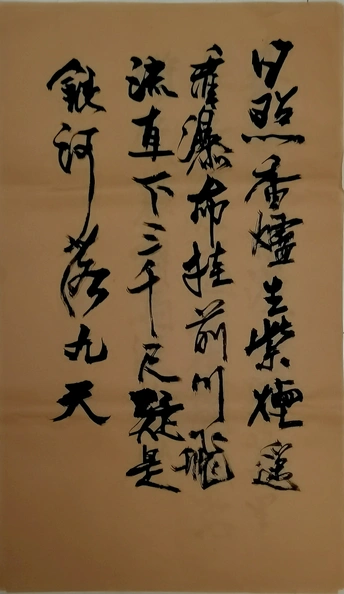 日照香爐生紫煙遥
看瀑布挂前川飛
流直下三千尺疑是
銀河落九天